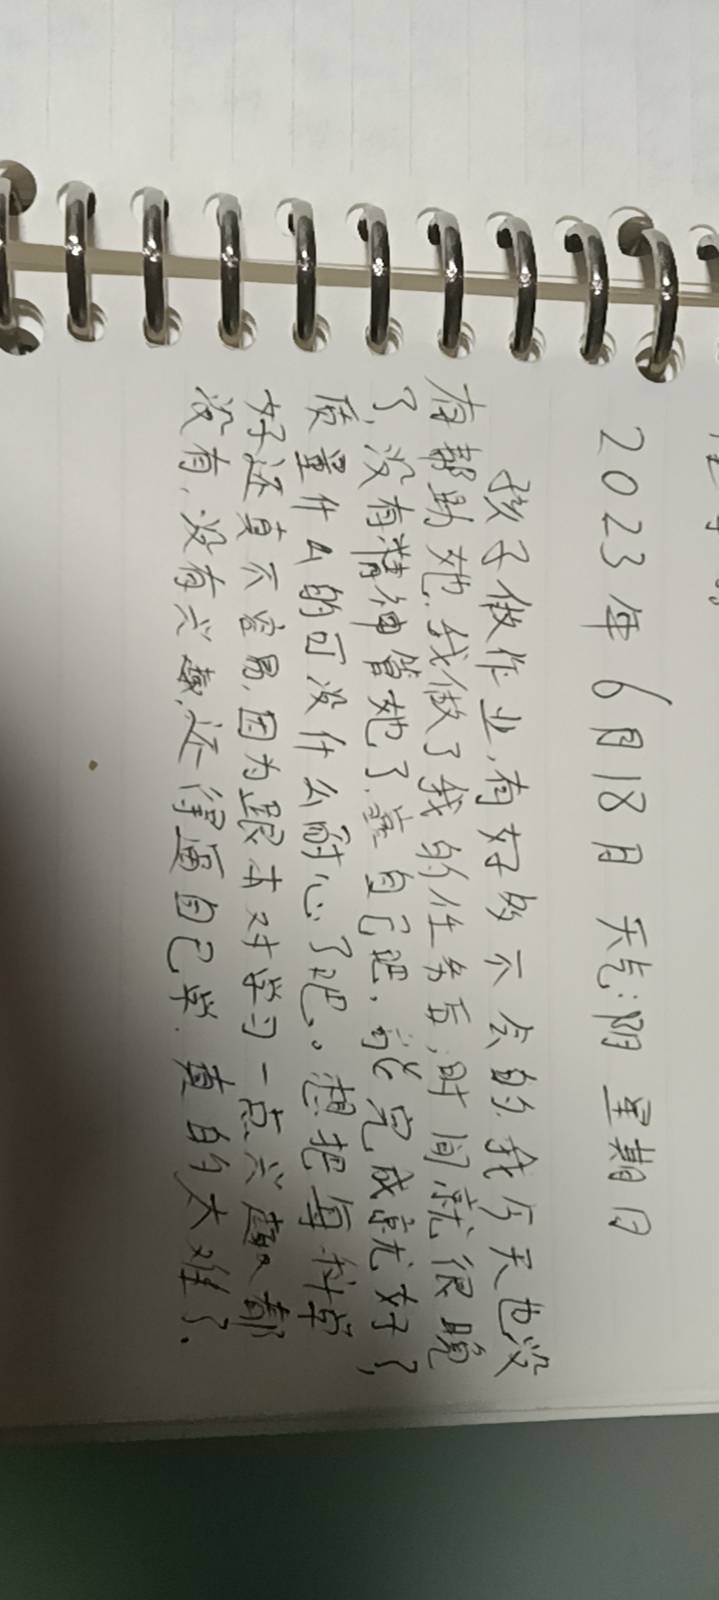 2023年6月18日 天气:阴 星期日
孩子做作业,有好多不会的.我今天也没
有帮助她.我做了我的任务后,时间就很晚
了,没有精神管她了.靠自己吧.能完成就好了,
质量什么的可没什么耐心了吧。想把每科学
好还真不容易,因为跟本对学习一点兴趣都
没有,没有兴趣,还得逼自己学.真的太难了.